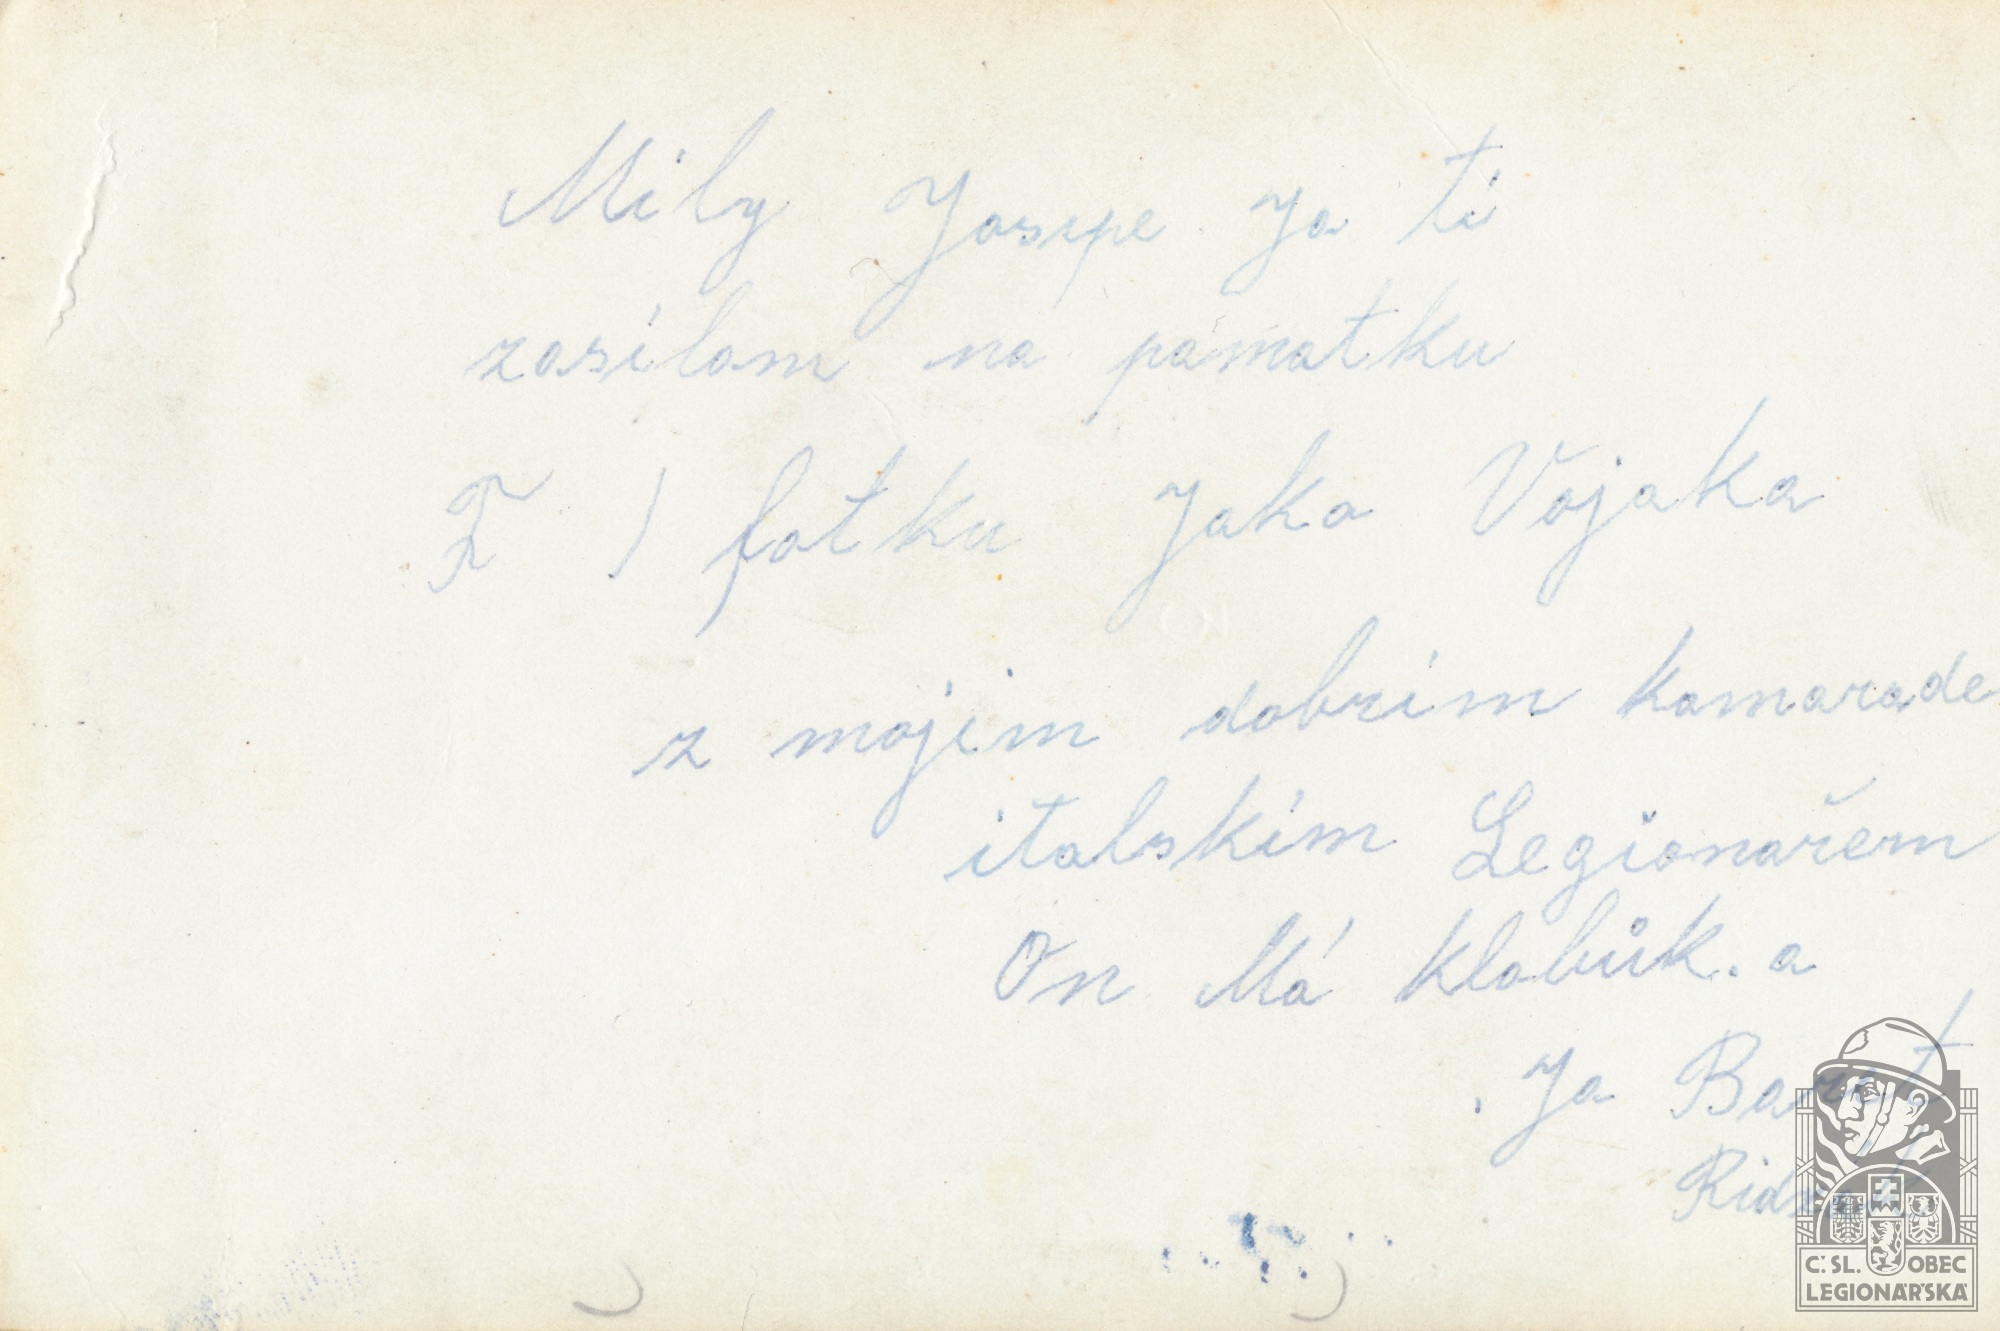 Mily Josipe Ja ti
zasílam na pámatku
F ) fotku Jako Vojaka
z mojim dobrim kamarade
italskím Legionařem
On Má klobůk. a
. Ja Baret
Č.SL. OBEC
LEGIONÁŘSKÁ